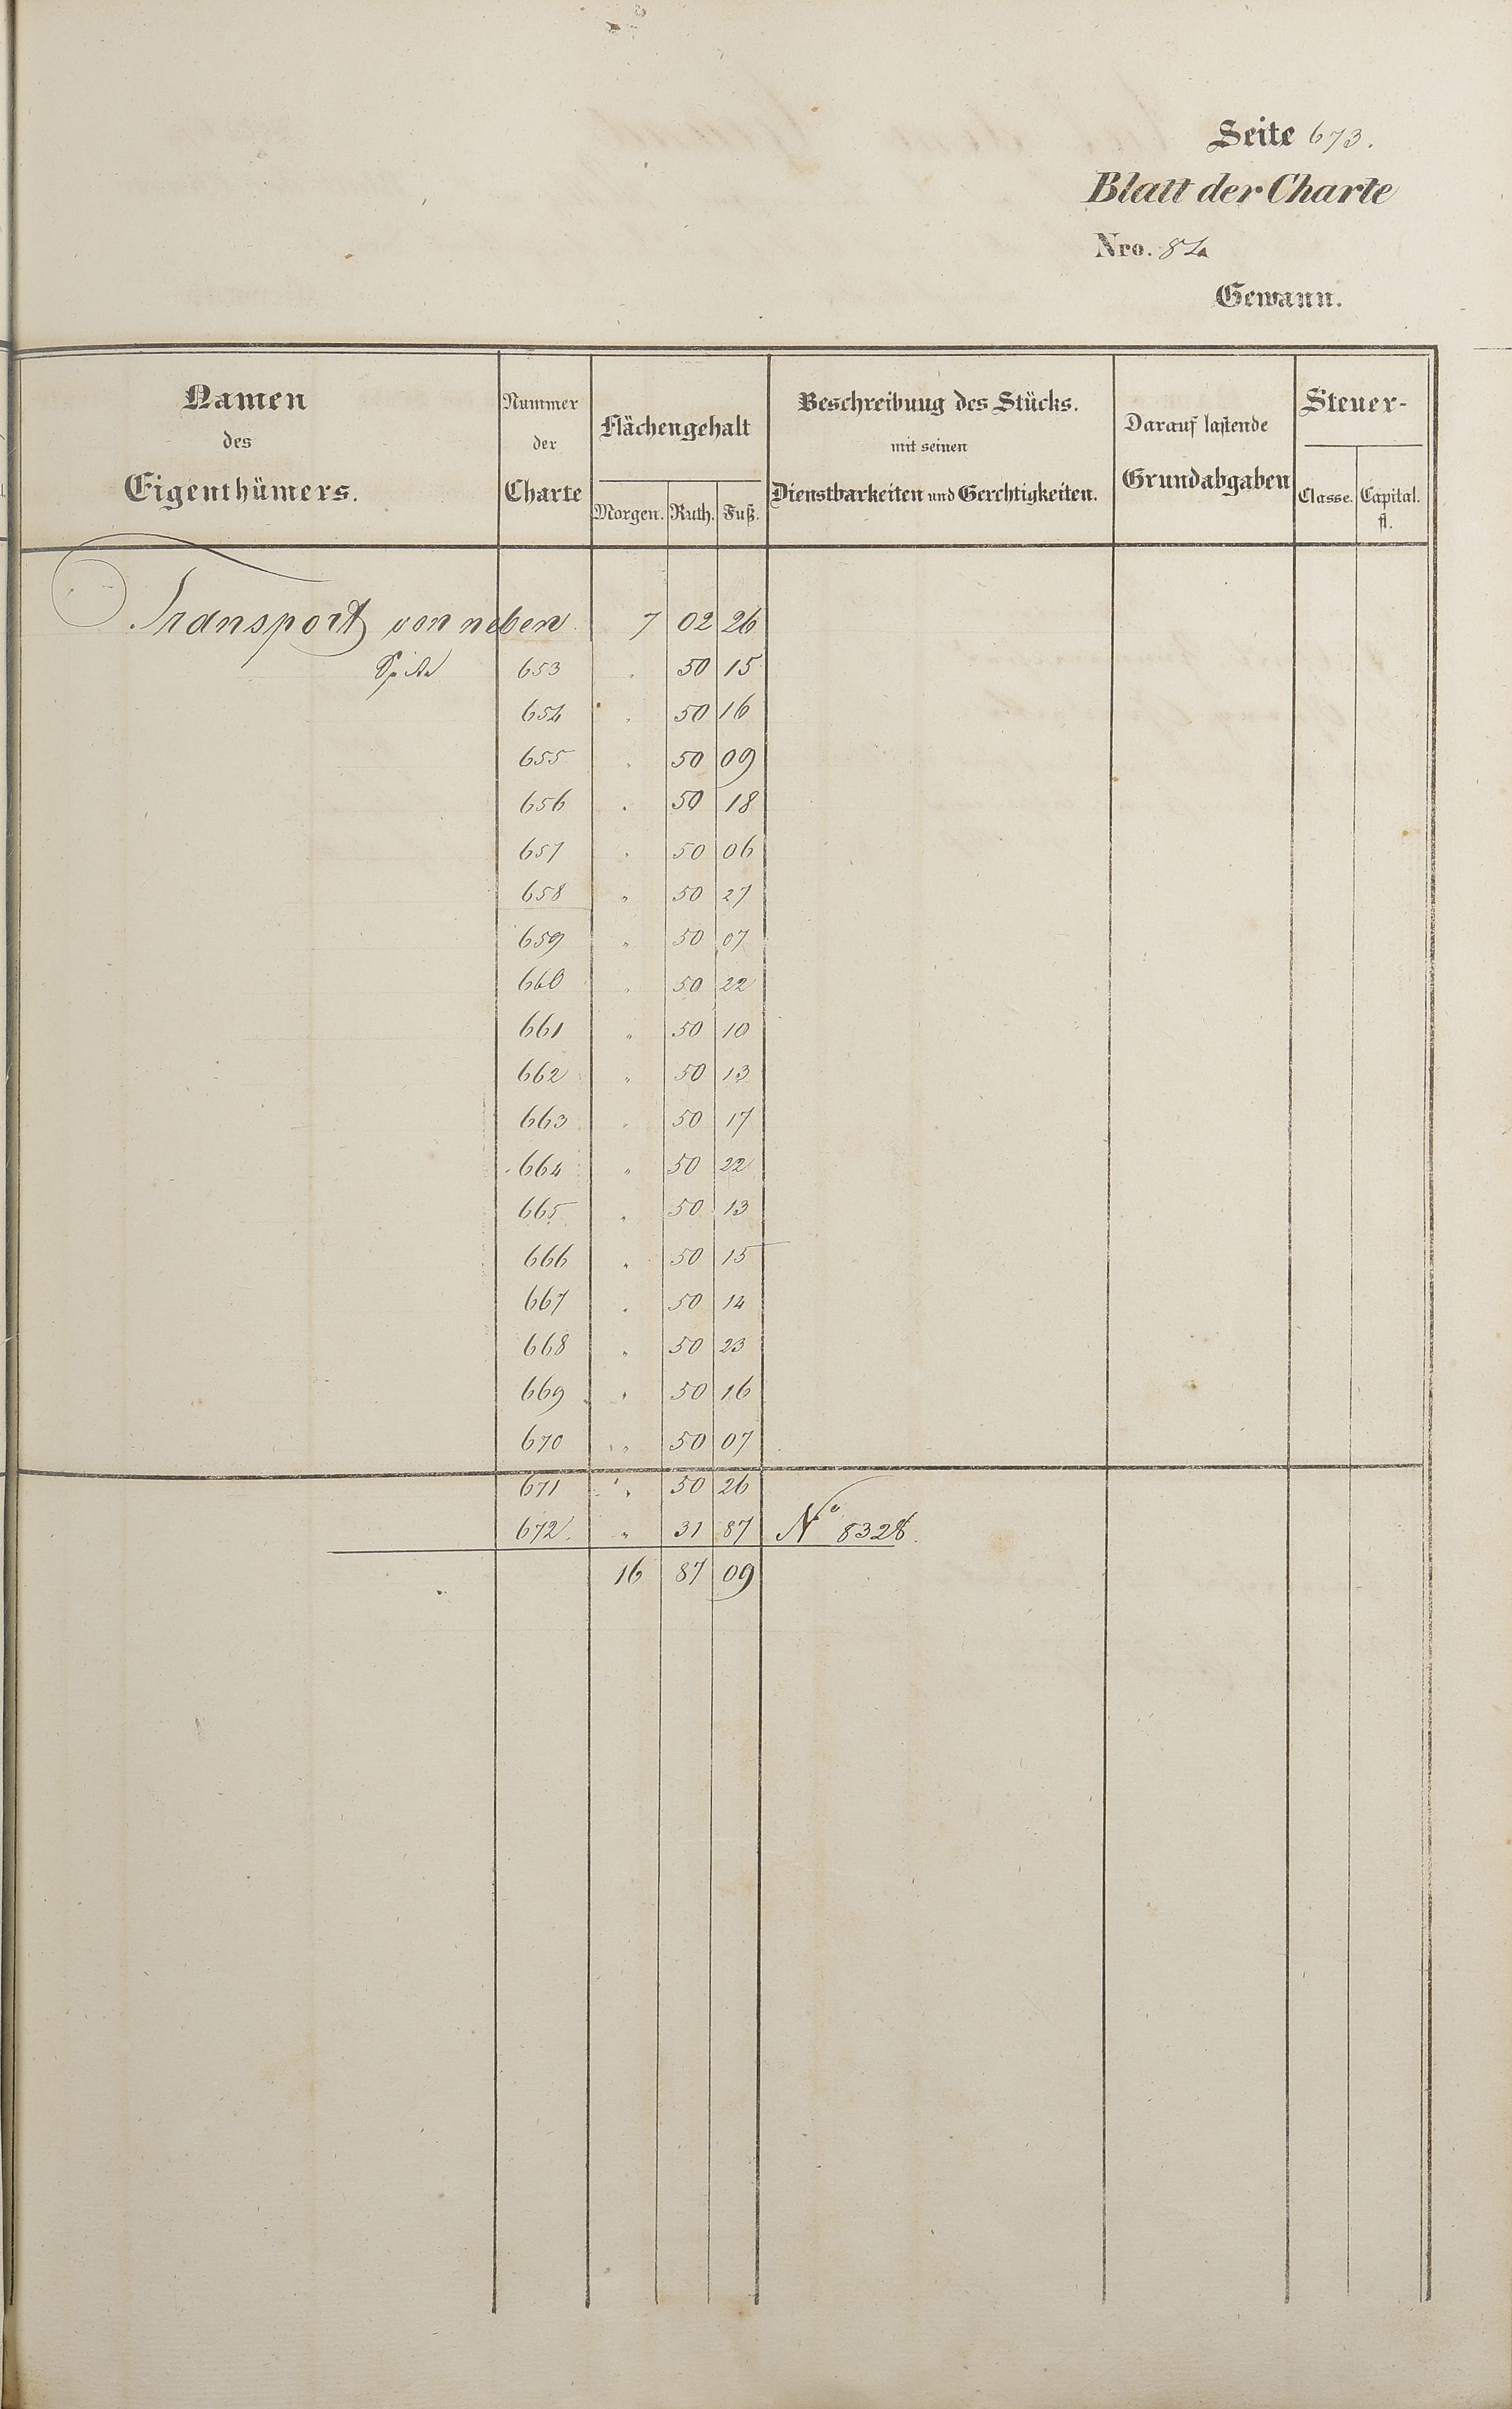 Seite 673.
Blatt der Charte
Nro. 82a
Gewann.
Namen des Eigenthümers.
Nummer der Charte
Flächengehalt
Morgen. Ruth. Fuß.
Beschreibung des Stücks. mit seinen Dienstbarkeiten und Gerechtigkeiten.
Darauf lastende Grundabgaben
Steuer-
Classe. Capital. fl.
Transport von neben 7 02 26
653 " 50 15
654 " 50 16
655 " 50 09
656 " 50 18
657 " 50 06
658 " 50 27
659 " 50 07
660 " 50 22
661 " 50 10
662 " 50 13
663 " 50 17
664 " 50 22
665 " 50 13
666 " 50 15
667 " 50 14
668 " 50 23
669 " 50 16
670 " 50 07
671 " 50 26
672. " 31 87 No 8328.
16 87 09